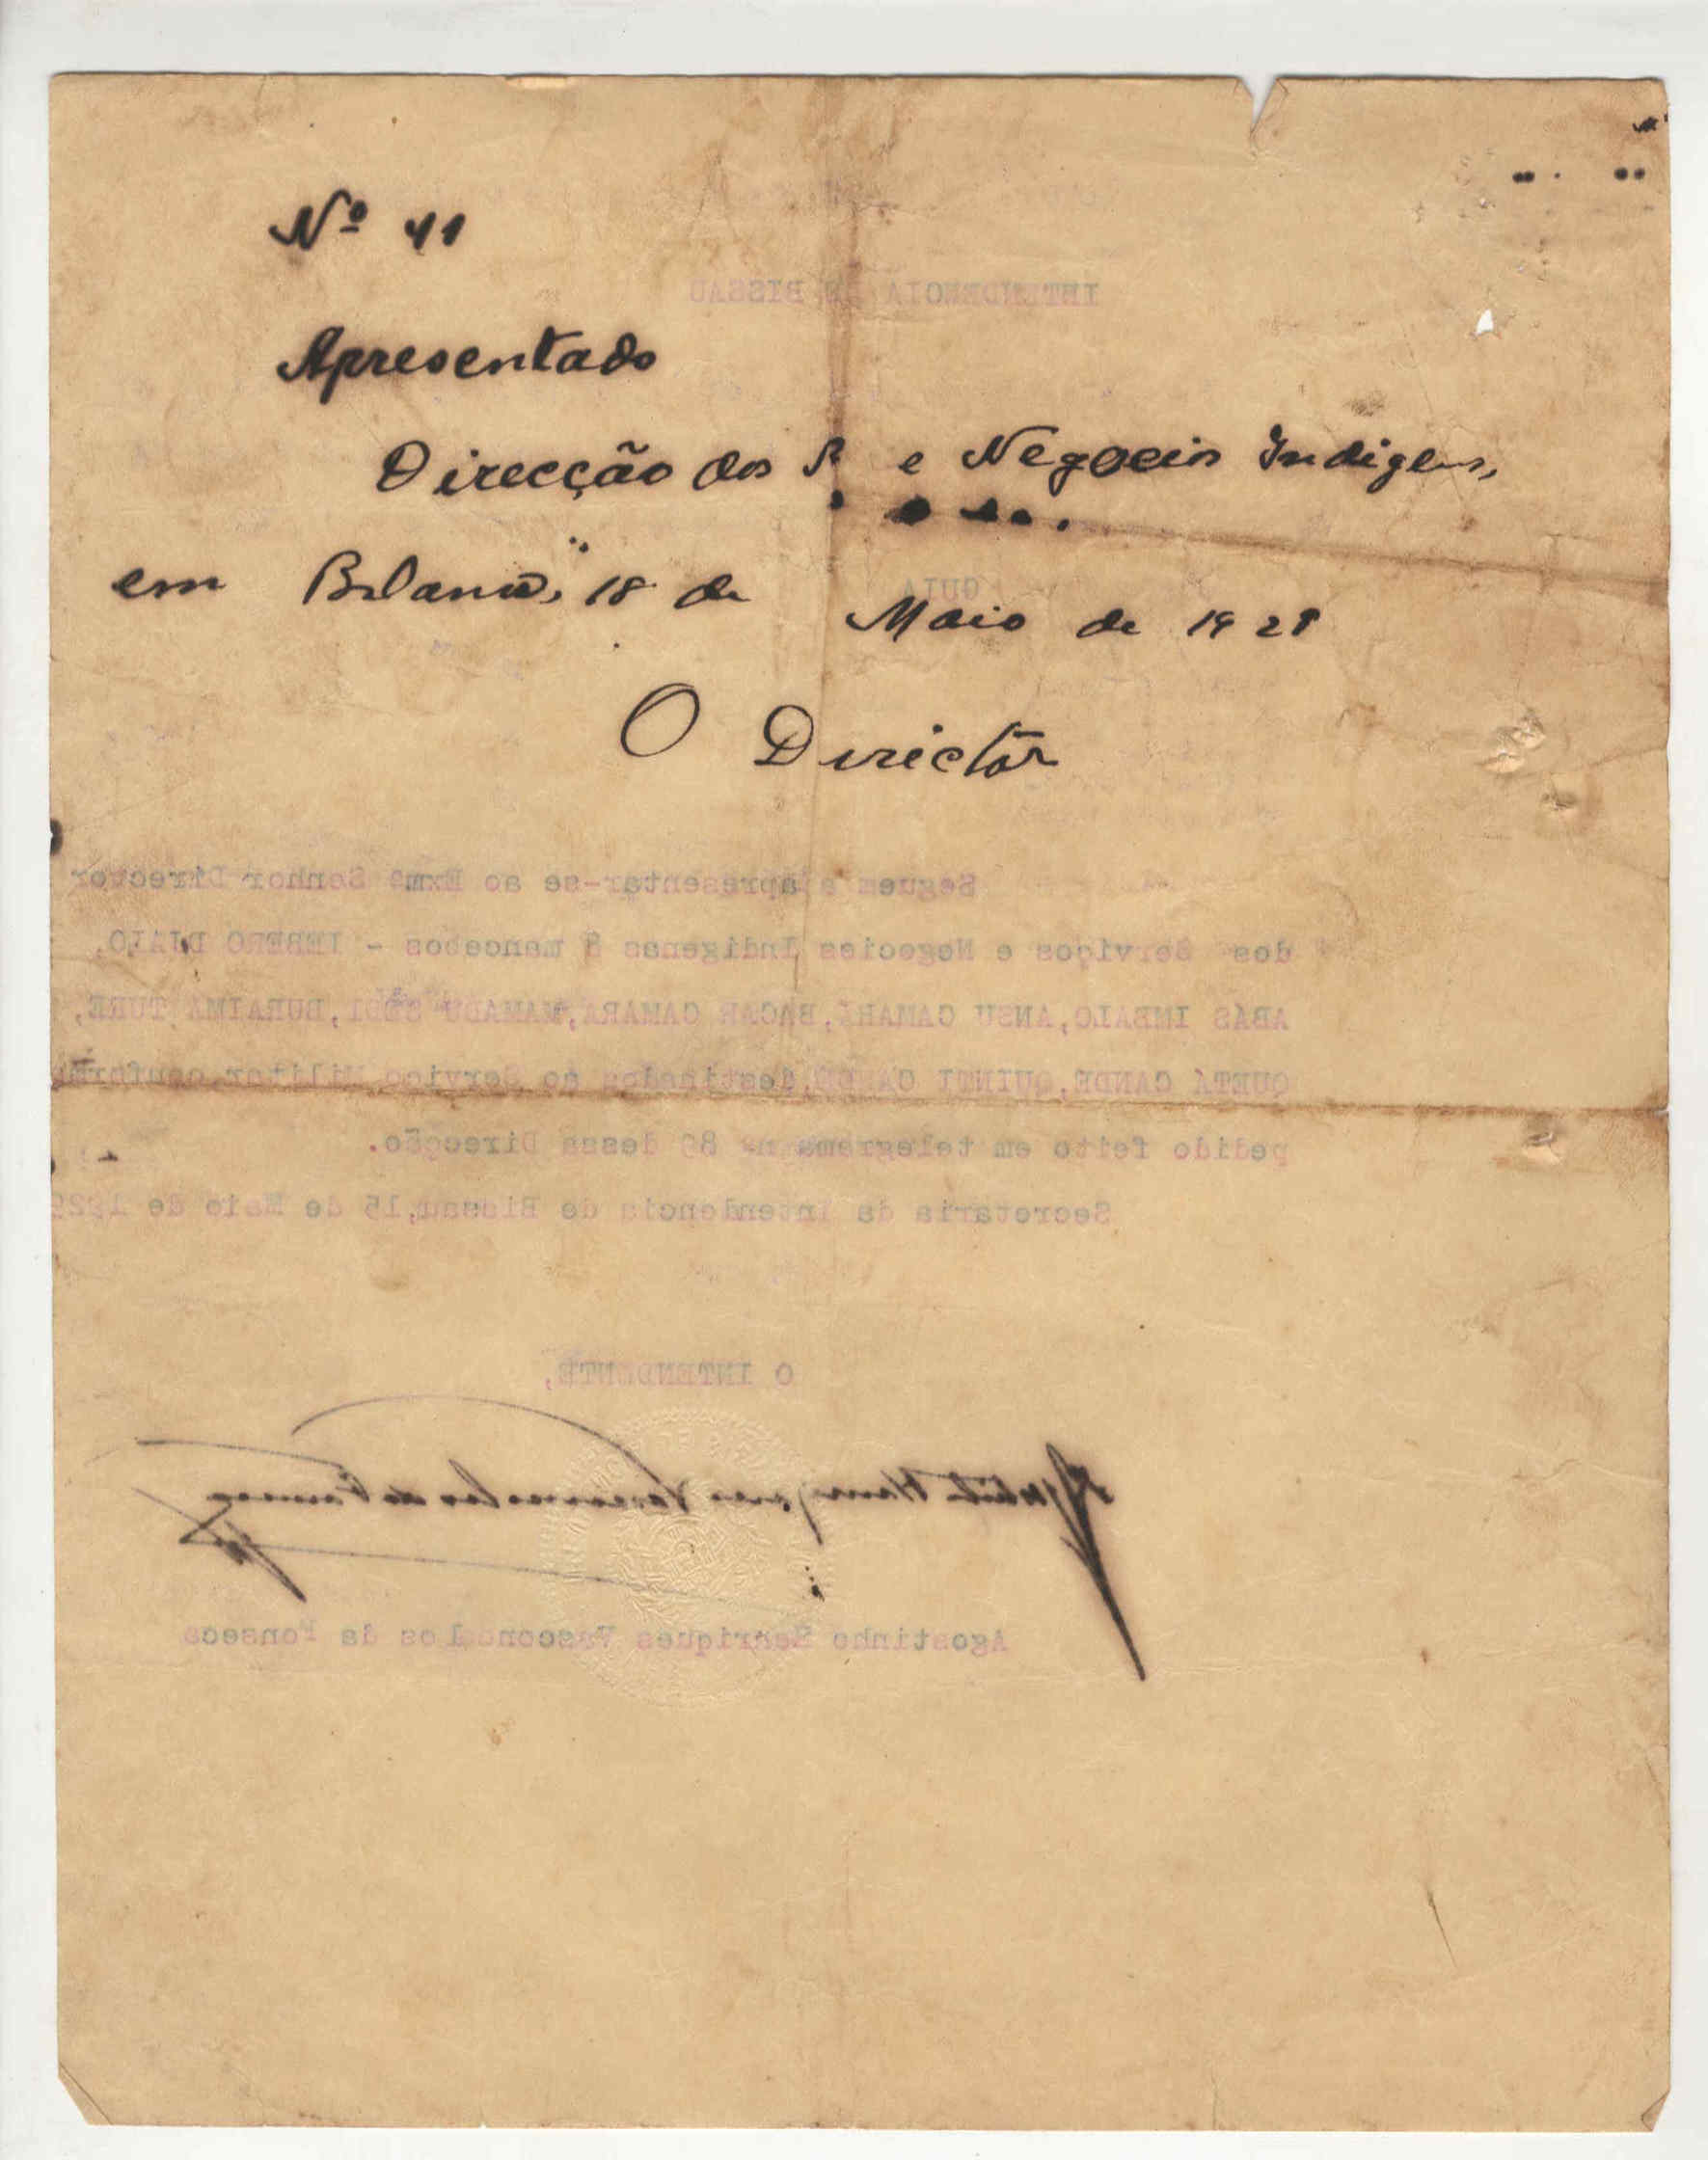 Nº 41
Apresentado
Direcção dos S e Negocios Indigenas,
em Bolama, 18 de Maio de 1929
O Director
INTENDENCIA DE BISSAU
GUIA
Seguem a apresentar-se ao Exmº Senhor Director
dos Serviços e Negocios Indigenas 8 mancebos - IEMBERO DJALO,
ABÁS IMBALO, ANSU CAMARÁ, BACAR CAMARA, MAMADU SEIDI, BURAIMA TURE,
QUETÁ CANDE, QUINTI CANDÉ, destinados ao Serviço Militar, conforme
pedido feito em telegrama nº 89 dessa Direcção.
Secretaria da Intendencia de Bissau, 15 de Maio de 1929
O INTENDENTE,
Agostinho Henriques Vasconcelos da Fonseca
Agostinho Henriques Vasconcelos da Fonseca